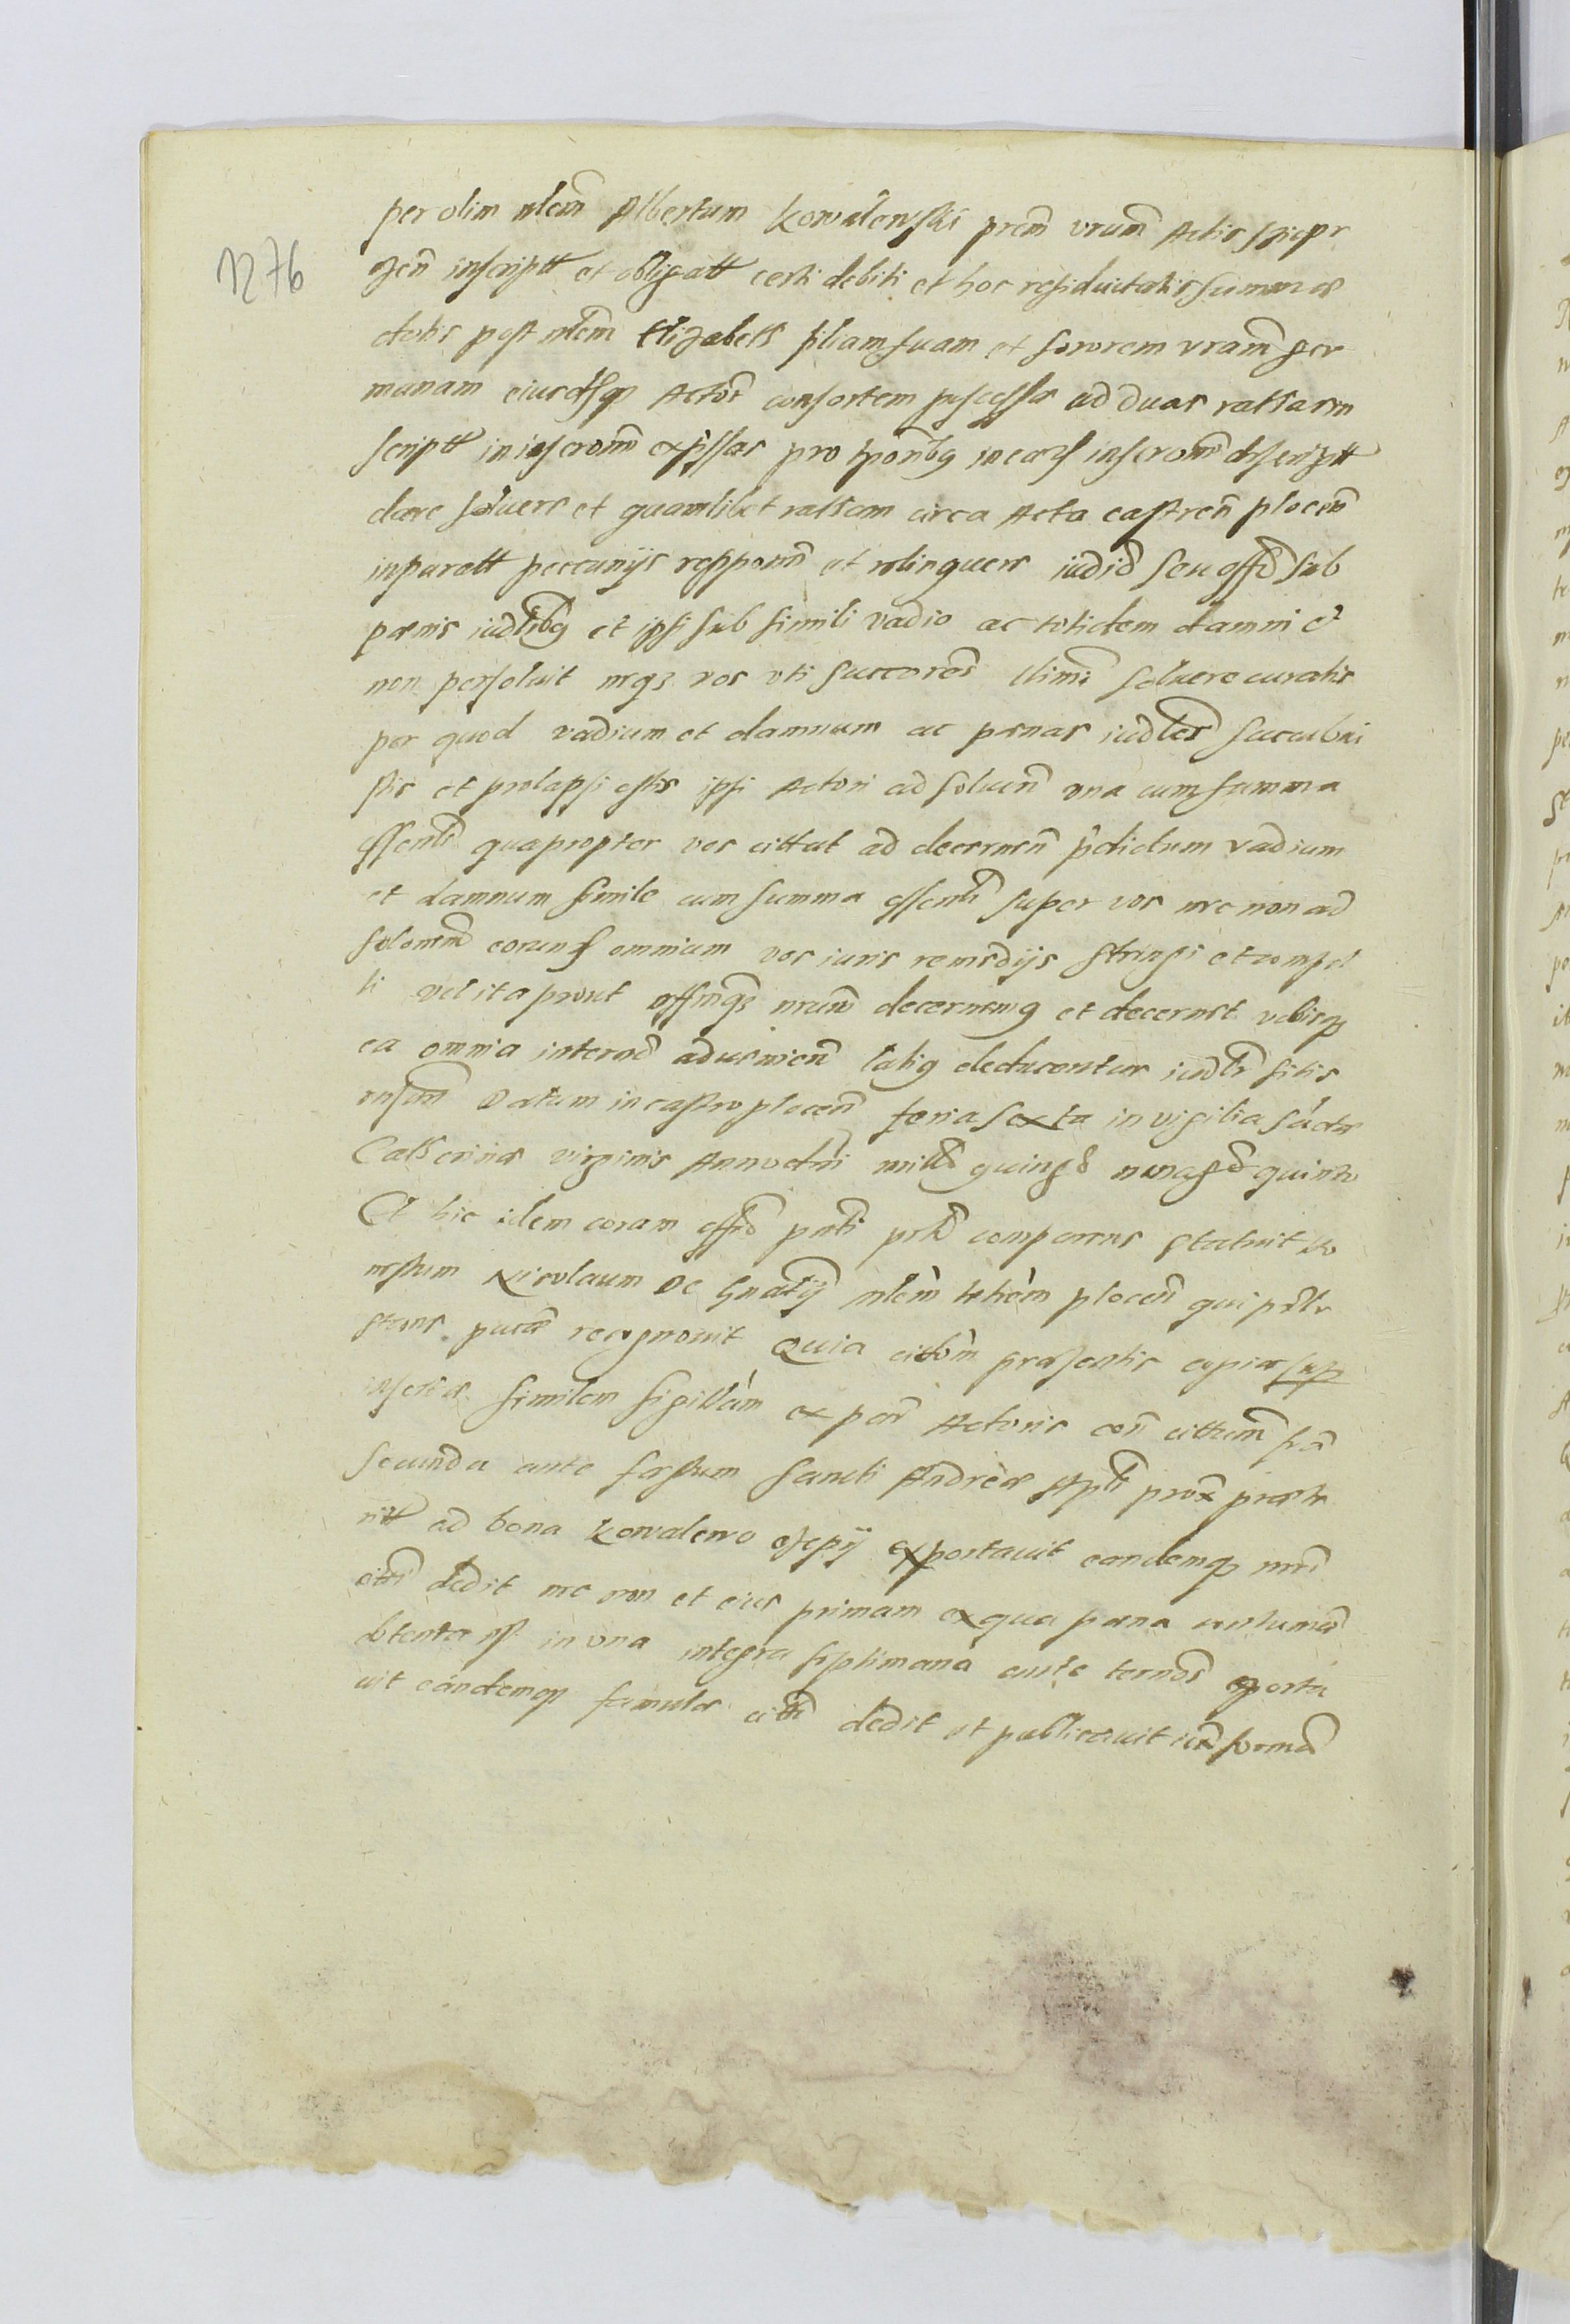 1276
per olim nlem Albertum Kowalewski prem vrum Actis Szrepr
zen inscriptt et obligatt certi debiti et hoc residuitatis summæ
dotis post nlem Elizabeth filiam suam et sororem vram ger
manam eiusdsq Actor consortem ad duas rathas in
script in inscronm expssas pro tporibq in eads inscronm descriptt
dare soluere et quamlibet ratham circa Acta castren plocen
in paratt peccunijs repponen et relinquere iudid seu offd sub
pœnis iudlibq et ipsi sub simili vadio ac totidem damni et
non persoluit neqz vos vti succores llimi soluere curatis
per quod vadium et damnum ac pænas iudles succubui
stis et prolapsi estis ipsi Actori ad soluen vna cum summa
essenli quapropter vos cittat ad decernen pdictum vadium
et damnum simile cum summa essenli super vos nec non ad
solonem eorunds omnium vos iuris remedijs stringi et compel
li vel ita prout offmqz nrum decernemq et decernet vobisq
ea omnia interad aduenien latiq deducentur iudlr sitis
Datum in castro plocen feria sexta in vigilia sctæ
Catherinæ virginis Anno dni milld quingd nonagd quinto
Et hic idem coram offd pnti psld comparens statuit ho
nestum Nicolaum De Gnaty nlem plocen qui psltr
stans pucæ recognouit Quia eidem præsentis copiæ sup
insertæ similem sigillàm ex par Actoris con cittum fra
secunda ante festum Sancti Andreæ Apli prox præte
ritt ad bona Kowalewo szepij exportauit eandemq mri
citti dedit nec non et eius primam ex qua pæna contumä
obtenta est in vna integra septimana ante ternos exporta
uit eandemq famulæ citti dedit et publicauit iux formä